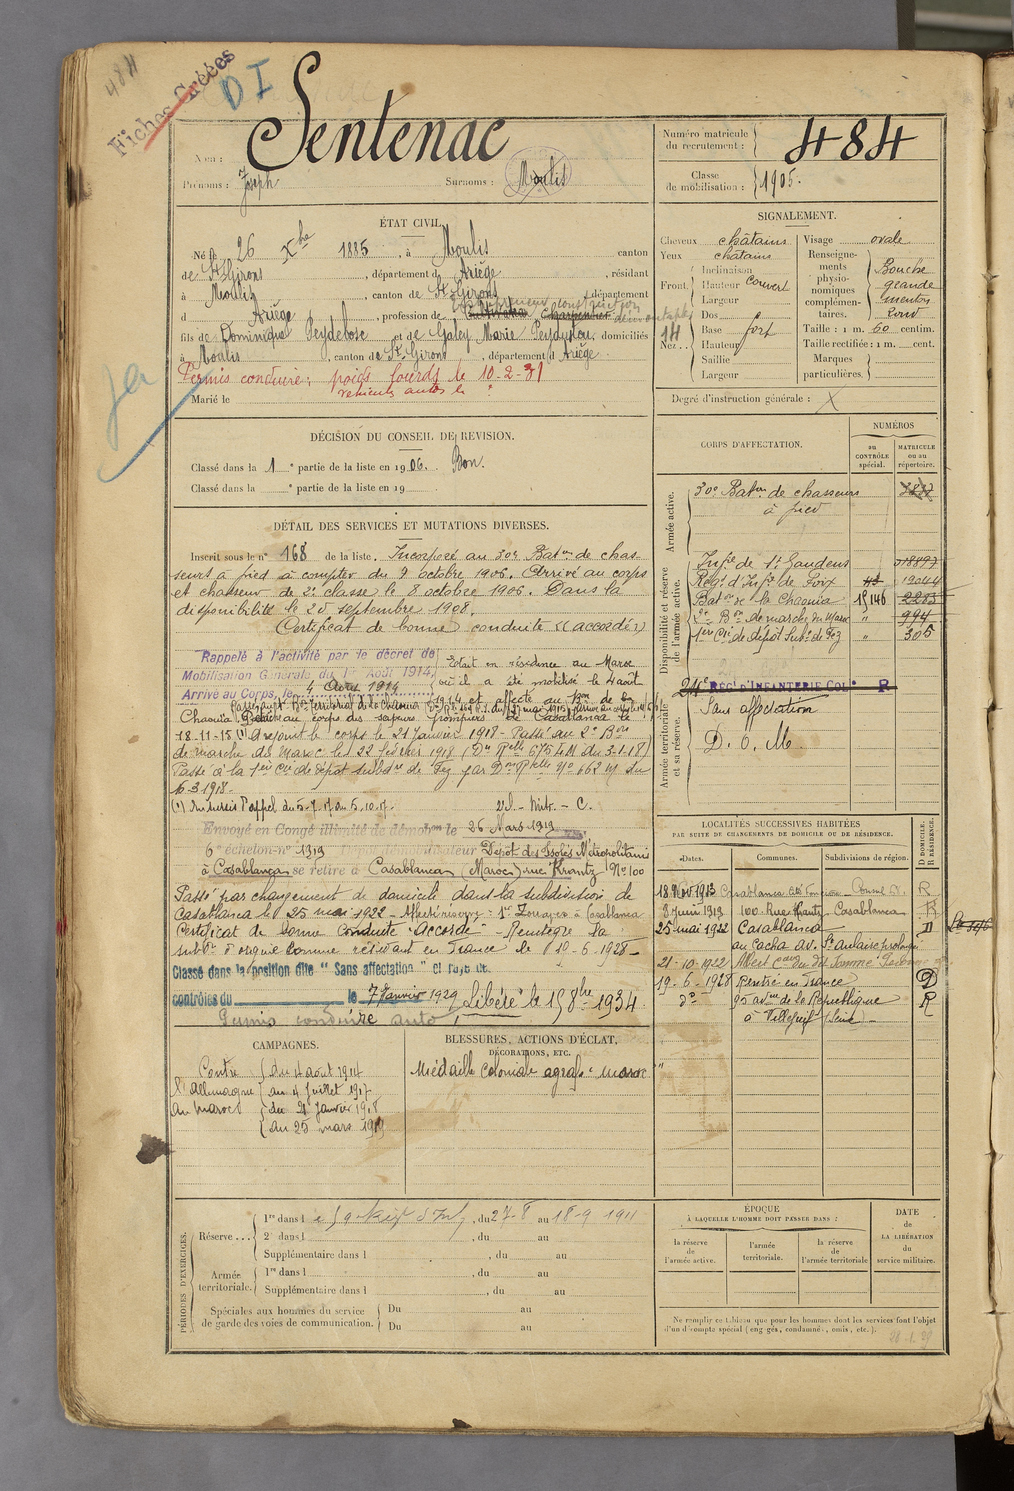 484
Fiches Créées
DI
Nom : Sentenac
Numéro matricule du recrutement : 484
Prénoms : Joseph Surnoms : Moulis
Classe de mobilisation : 1905.
ÉTAT CIVIL.
Né le 26 Xbre 1885, à Moulis canton
de St Girons, département d Ariège, résidant
à Moulis, canton de St Girons, département
d Ariège, profession de Cultivateur Charpentier
Entrepreneur construction démontable
fils de Dominique Peydebose et de Galey Marie domiciliés
à Moulis, canton de St Girons, département d Ariège.
Permis conduire, poids lourds le 10-2-31
Marié le
SIGNALEMENT.
Cheveux châtains
Yeux châtains
Front. Inclinaison
Hauteur couvert
Largeur
Nez. Dos
Base fort
Hauteur
Saillie
Largeur
Visage ovale
Renseignements physionomiques complémentaires. Bouche grande menton rond
Taille : 1 m. 60 centim.
Taille rectifiée : 1 m. cent.
Marques particulières.
Degré d'instruction générale : X
DÉCISION DU CONSEIL DE REVISION.
Classé dans la 1e partie de la liste en 1906. Bon.
Classé dans la e partie de la liste en 19
DÉTAIL DES SERVICES ET MUTATIONS DIVERSES.
Inscrit sous le n° 168 de la liste. Incorporé au 30e Baton de chas-
seurs à pied à compter du 7 octobre 1906. Arrivé au corps
et chasseur de 2e classe le 8 octobre 1906. Dans la
disponibilité le 25 septembre 1908.
Certificat de bonne conduite "accordé"
Rappelé à l'activité par le décret de
Mobilisation Générale du 1er Août 1914,
Arrivé au Corps, le 4 Août 1914
Etait en résidence au Maroc
où il a été mobilisé le 4 août
1914 et affecté au Bon de la
Chaouia Détaché au corps des sapeurs pompiers de Casablanca le
18-11-15 (1) A rejoint le corps le 21 Janvier 1918 - Passé au 2e Bon
de marche du Maroc le 22 février 1918 (Don Rlle 675 4M du 3.1.18)
Passé à la 1ère Cie de dépôt subdre de Fez par Don Rlle No 662 M du
6-3-1918.
(1) En sursis d'appel du 5-7-17 au 5.10.17.
Envoyé en Congé illimité de démobon le 26 Mars 1919
6e échelon-n° 1319 Dépôt démobilisateur Dépôt des Isolés Métropolitains
à Casablanca se retire à Casablanca (Maroc) rue Krantz No 100
Passé par changement de domicile dans la subdivision de
Casablanca le 25 mai 1922 - Affecté réserve 1er Zouaves à Casablanca
Certificat de bonne Conduite "Accordé" - Réintègre la
subdn d'origine comme résidant en France le 19-6-1928 -
Classé dans la position dite "Sans affectation" et rayé des
contrôles du le 7 Janvier 1929 Libéré le 15 8bre 1934
Permis conduire auto
CORPS D'AFFECTATION.
NUMÉROS
au CONTRÔLE spécial.
MATRICULE ou au répertoire.
Armée active.
30e Baton de chasseurs à pied
Disponibilité et réserve de l'armée active.
Infie de St Gaudens
Régt d'Infie de Foix 12044
Baton de la Chaouia 15146 2283
2e Bon de marche du Maroc " 994
1ère Cie de dépôt Subre de Fez " 305
Armée territoriale et sa réserve.
24e RÉGt D'INFANTERIE COLe R
Sans affectation
D. O. M.
LOCALITÉS SUCCESSIVES HABITÉES
PAR SUITE DE CHANGEMENTS DE DOMICILE OU DE RÉSIDENCE.
Dates. Communes. Subdivisions de région. D DOMICILE. R RÉSIDENCE.
18 Nov 1913 Casablanca R
8 juin 1919 100 Rue Krantz Casablanca R
25 mai 1922 Casablanca D
21-10-1922
19-6-1928 Rentré en France D
do 95 avue de la République R
à Villejuif (Seine) -
CAMPAGNES.
Contre l'Allemagne au Maroc
du 4 août 1914
au 4 Juillet 1917
du 21 Janvier 1918
au 25 mars 1919
BLESSURES, ACTIONS D'ÉCLAT,
DÉCORATIONS, ETC.
Médaille coloniale agrafe "Maroc"
PÉRIODES D'EXERCICES.
Réserve... 1re dans l , du 27-8 au 18-9 1911
2e dans l , du au
Supplémentaire dans l , du au
Armée territoriale. 1re dans l , du au
Supplémentaire dans l , du au
Spéciales aux hommes du service
de garde des voies de communication. Du au
Du au
ÉPOQUE
À LAQUELLE L'HOMME DOIT PASSER DANS :
la réserve de l'armée active.
l'armée territoriale.
la réserve de l'armée territoriale
DATE de LA LIBÉRATION du service militaire.
Ne remplir ce tableau que pour les hommes dont les services font l'objet
d'un décompte spécial (engagés, condamnés, omis, etc.).